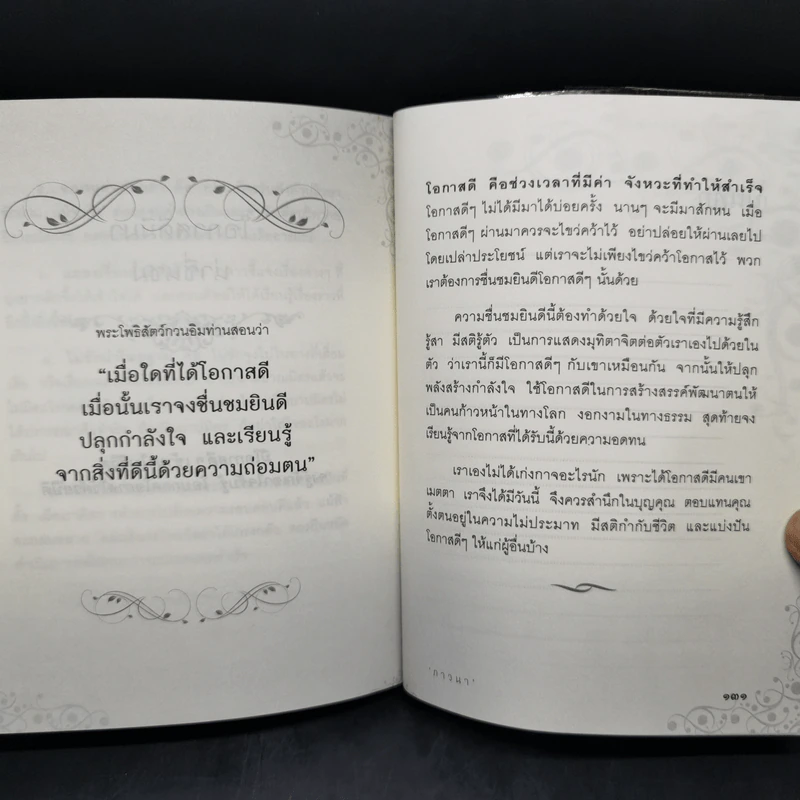 พระโพธิสัตว์กวนอิมท่านสอนว่า
“เมื่อใดที่ได้โอกาสดี
เมื่อนั้นเราจงชื่นชมยินดี
ปลุกกำลังใจ และเรียนรู้
จากสิ่งที่ดีนี้ด้วยความถ่อมตน”
โอกาสดี คือช่วงเวลาที่มีค่า จังหวะที่ทำให้สำเร็จ
โอกาสดีๆ ไม่ได้มีมาได้บ่อยครั้ง นานๆ จะมีมาสักหน เมื่อ
โอกาสดีๆ ผ่านมาควรจะไขว่คว้าไว้ อย่าปล่อยให้ผ่านเลยไป
โดยเปล่าประโยชน์ แต่เราจะไม่เพียงไขว่คว้าโอกาสไว้ พวก
เราต้องการชื่นชมยินดีโอกาสดีๆ นั้นด้วย
ความชื่นชมยินดีนี้ต้องทำด้วยใจ ด้วยใจที่มีความรู้สึก
รู้สา มีสติรู้ตัว เป็นการแสดงมุทิตาจิตต่อตัวเราเองไปด้วยใน
ตัว ว่าเรานี้ก็มีโอกาสดีๆ กับเขาเหมือนกัน จากนั้นให้ปลุก
พลังสร้างกำลังใจ ใช้โอกาสดีในการสร้างสรรค์พัฒนาตนให้
เป็นคนก้าวหน้าในทางโลก งอกงามในทางธรรม สุดท้ายจง
เรียนรู้จากโอกาสที่ได้รับนี้ด้วยความอดทน
เราเองไม่ได้เก่งกาจอะไรนัก เพราะได้โอกาสดีมีคนเขา
เมตตา เราจึงได้มีวันนี้ จึงควรสำนึกในบุญคุณ ตอบแทนคุณ
ตั้งตนอยู่ในความไม่ประมาท มีสติกำกับชีวิต และแบ่งปัน
โอกาสดีๆ ให้แก่ผู้อื่นบ้าง
'ภาวนา'
๑๓๑